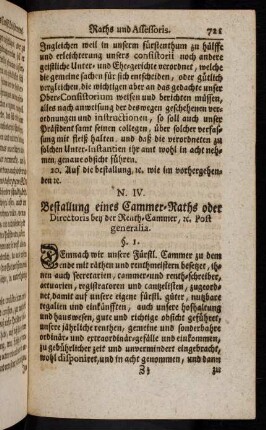 Raths und Assessoris. 721
Ingleichen weil in unserm fürstenthum zu hülffe
und erleichterung unsers consistorii noch andere
geistliche Unter- und Ehe-gerichte verordnet, welche
die gemeine sachen für sich entscheiden, oder gütlich
vergleichen, die wichtigen aber an das gedachte unser
Ober-Consistorium weisen und berichten müssen,
alles nach anweisung der deswegen geschehenen ver-
ordnungen und instructionen, so soll auch unser
Präsident samt seinen collegen, über solcher verfas-
sung mit fleiß halten, und daß die verordneten zu
solchen Unter-Instantien ihr amt wohl in acht neh-
men, genaue obsicht führen.
20. Auf die bestallung, ꝛc. wie im vorhergehen-
den ꝛc.
N. IV.
Bestallung eines Cammer-Raths oder
Directoris bey der Renth-Cammer, ꝛc. Post
generalia.
§. 1.
Demnach wir unsere Fürstl. Cammer zu dem
ende mit räthen und renthmeistern besetzet, ih-
nen auch secretarien, cammer- und renth-schreiber,
actuarien, registratoren und cantzelisten, zugeord-
net, damit auf unsere eigene fürstl. güter, nutzbare
regalien und einkünfften, auch unsere hofhaltung
und hauswesen, gute und richtige obsicht geführet,
unsere jährliche renthen, gemeine und sonderbahre
ordinär- und extraordinär-gefälle und einkommen,
zu gebührlicher zeit und unvermindert eingebracht,
wohl disponiret, und in acht genommen, und dann
Zz zu